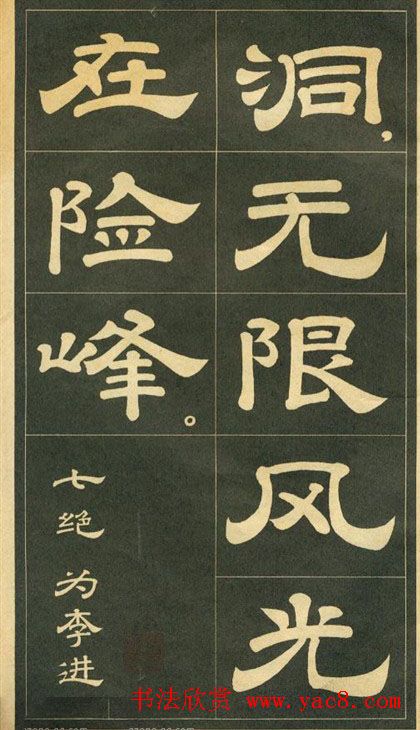 洞，无限风光
在险峰。
七绝 为李进
书法欣赏 www.yac8.com